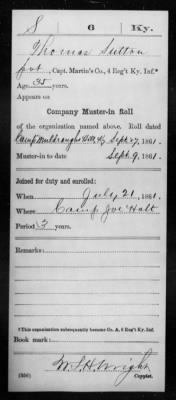 S 6 Ky.
Thomas Sutton
Pvt., Capt. Martin's Co., 6 Reg't Ky. Inf.*
Age 35 years.
Appears on
Company Muster-in Roll
of the organization named above. Roll dated
Camp Muldraughs Hill, Ky Sept. 27, 1861.
Muster-in to date Sept. 9, 1861.
Joined for duty and enrolled:
When July 21, 1861.
Where Camp Joe Holt
Period 3 years.
Remarks:
*This organization subsequently became Co. A, 6 Reg't Ky. Inf.
Book mark:
W. S. H. Wright
(356) Copyist.